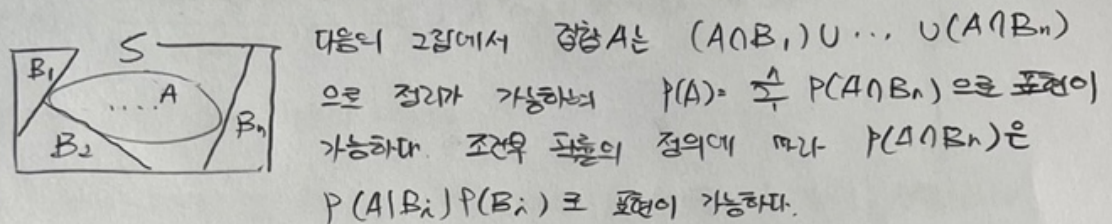 S
B₁
.... A
B₂
Bₙ
다음의 그림에서 집합 A는 (A∩B₁)∪ ··· ∪(A∩Bₙ)
으로 정리가 가능하며 P(A)= P(A∩Bₙ)으로 표현이
가능하다. 조건부 확률의 정의에 따라 P(A∩Bₙ)은
P(A|Bᵢ)P(Bᵢ)로 표현이 가능하다.